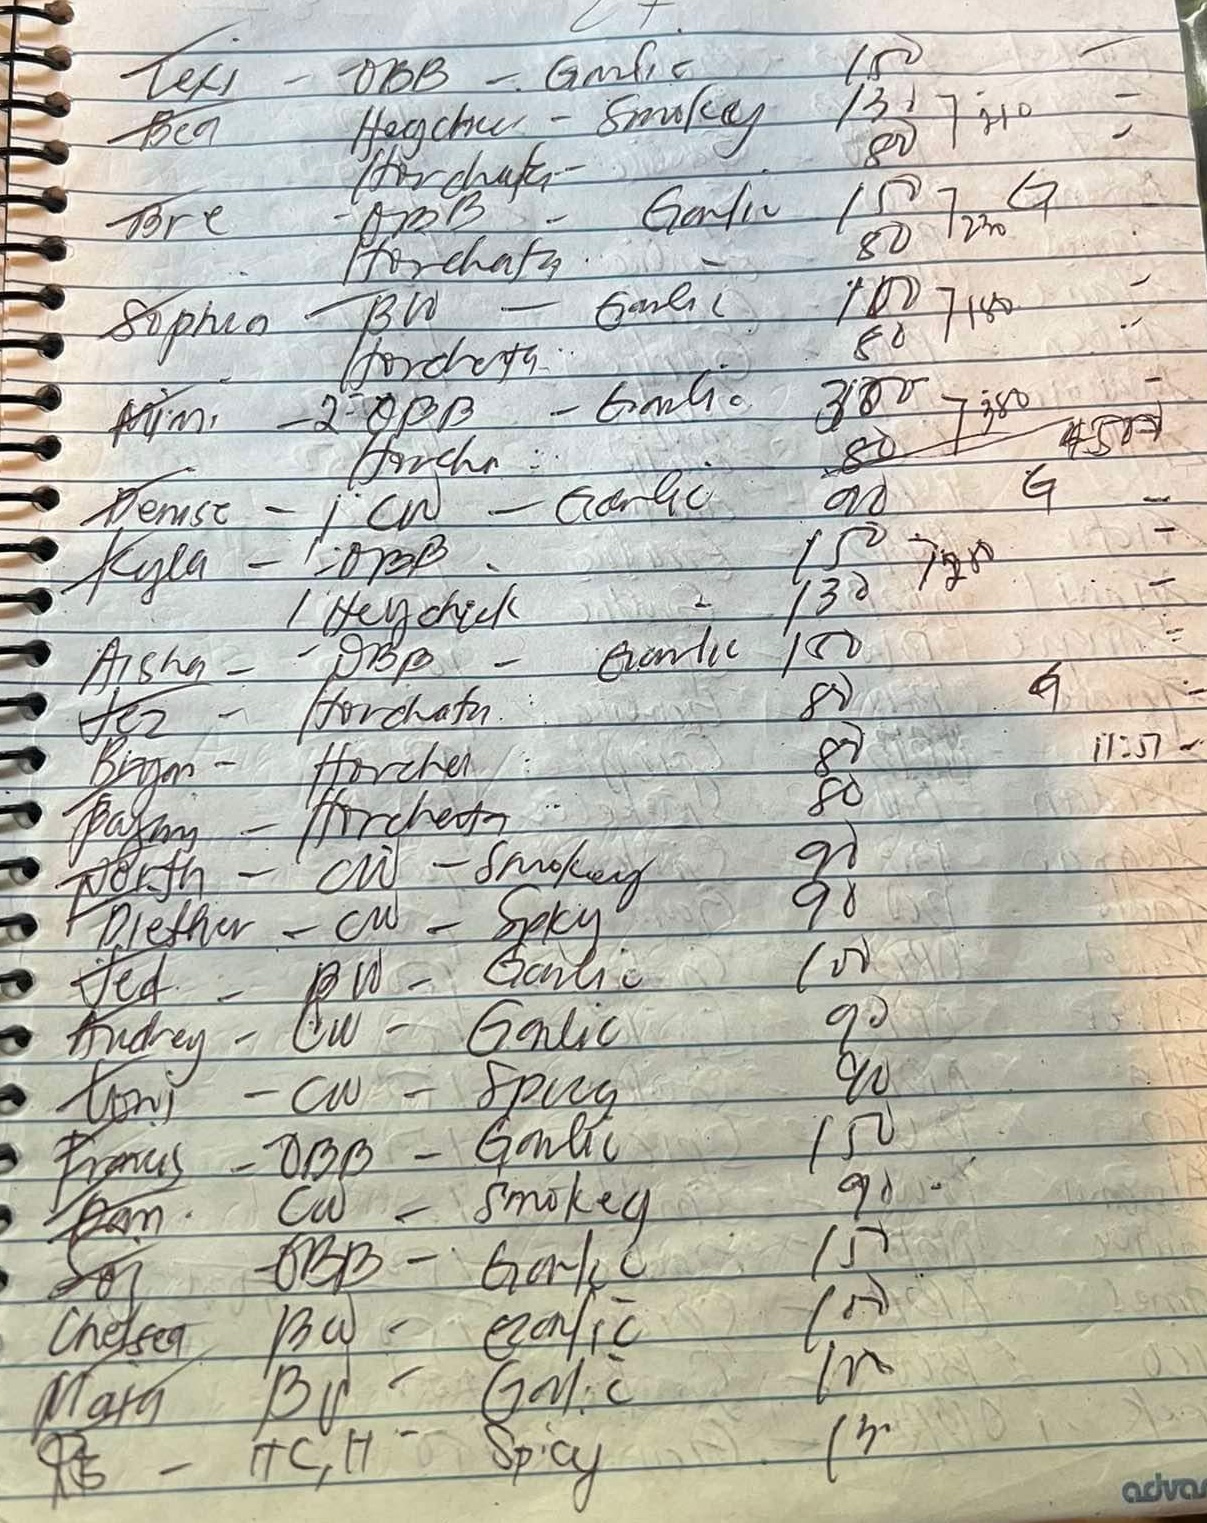 Lexi - OBB - Garlic 150 -
Bea Heychick - Smokey 130 ] 210 -
Horchata - 80
Bre - OBB - Garlic 150 ] 230 G
Horchata - 80
Sophia - BW - Garlic 100 ] 180 -
Horchata 80
Mimi - 2 OBB - Garlic 300 ] 380 -
Horcha 80 450
Denise - 1 CW - Garlic 90 G -
Kyla - 1 OBB 150 ] 280 -
1 Heychick - 130 -
Aisha - OBB - Garlic 150
Jez - Horchata 80 G -
Bryan - Horcha 80 11:51 -
80
Horchata
North - CW - Smokey 90
Diether - CW - Spicy 90
Jed - BW - Garlic 100
Audrey - CW - Garlic 90
Toni - CW - Spicy 90
Francis - OBB - Garlic 150
Dan CW - Smokey 90
OBB - Garlic 150
Chelsea BW - Garlic 100
Mara BW - Garlic 100
- HC, H - Spicy 130
advan